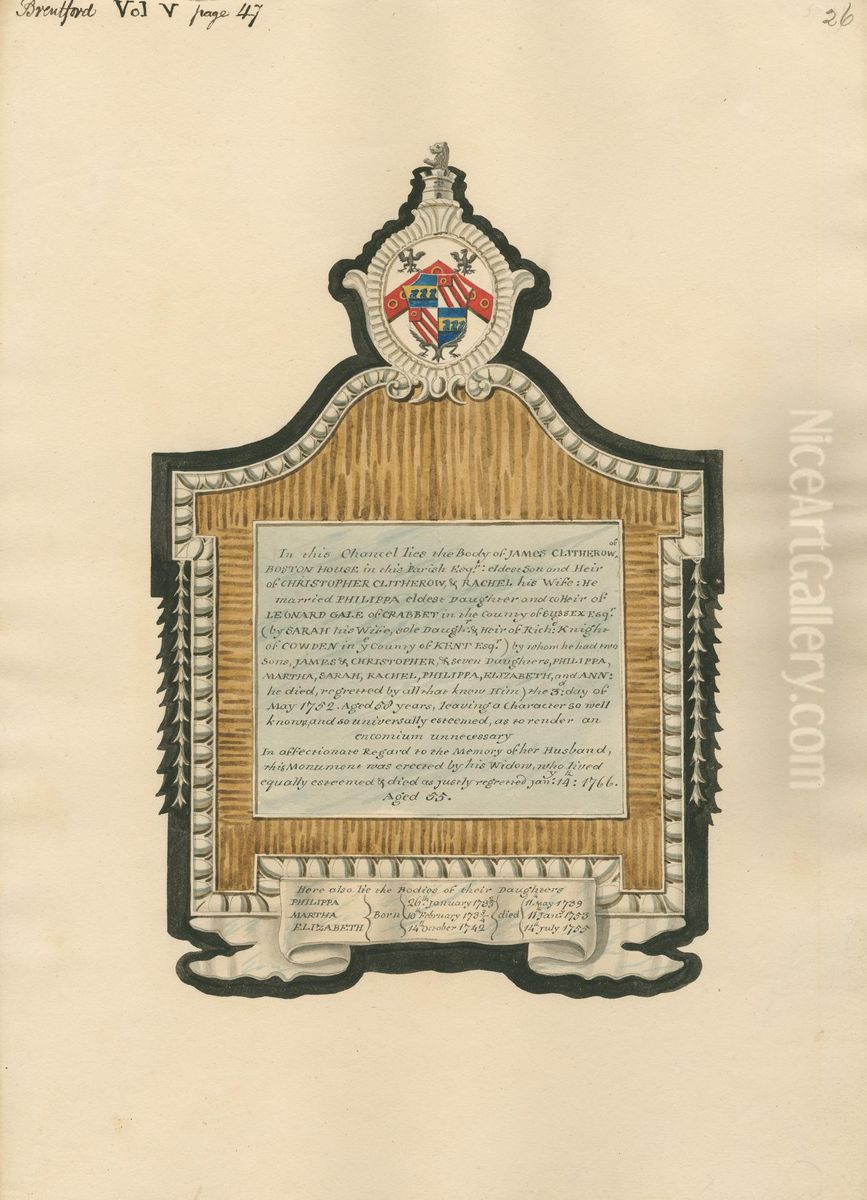 Brentford Vol V page 47
26
In this Chancel lies the Body of JAMES CLITHEROW, of
BOSTON HOUSE in this Parish Esqr: eldest Son and Heir
of CHRISTOPHER CLITHEROW, & RACHEL his Wife: He
married PHILIPPA eldest Daughter and coHeir of
LEONARD GALE of CRABBET in the County of SUSSEX Esqr.
(by SARAH his Wife, sole Daughr. & Heir of Richd. Knight
of COWDEN in ye County of KENT Esqr.) by whom he had two
Sons, JAMES & CHRISTOPHER, & seven Daughters, PHILIPPA,
MARTHA, SARAH, RACHEL, PHILIPPA, ELIZABETH, and ANN:
he died, regretted by all that knew Him) the 3d: day of
May 1752. Aged 58 years, leaving a Character so well
known, and so universally esteemed, as to render an
encomium unnecessary
In affectionate Regard to the Memory of her Husband,
this Monument was erected by his Widow, who lived
equally esteemed & died as justly regretted Jany. 14th: 1766.
Aged 55.
Here also lie the Bodies of their Daughters
PHILIPPA 26th January died 11 May 1739
MARTHA Born 10th February died 11 Jany.
ELIZABETH 14th October 1742 14th July 1755
NiceArtGallery.com